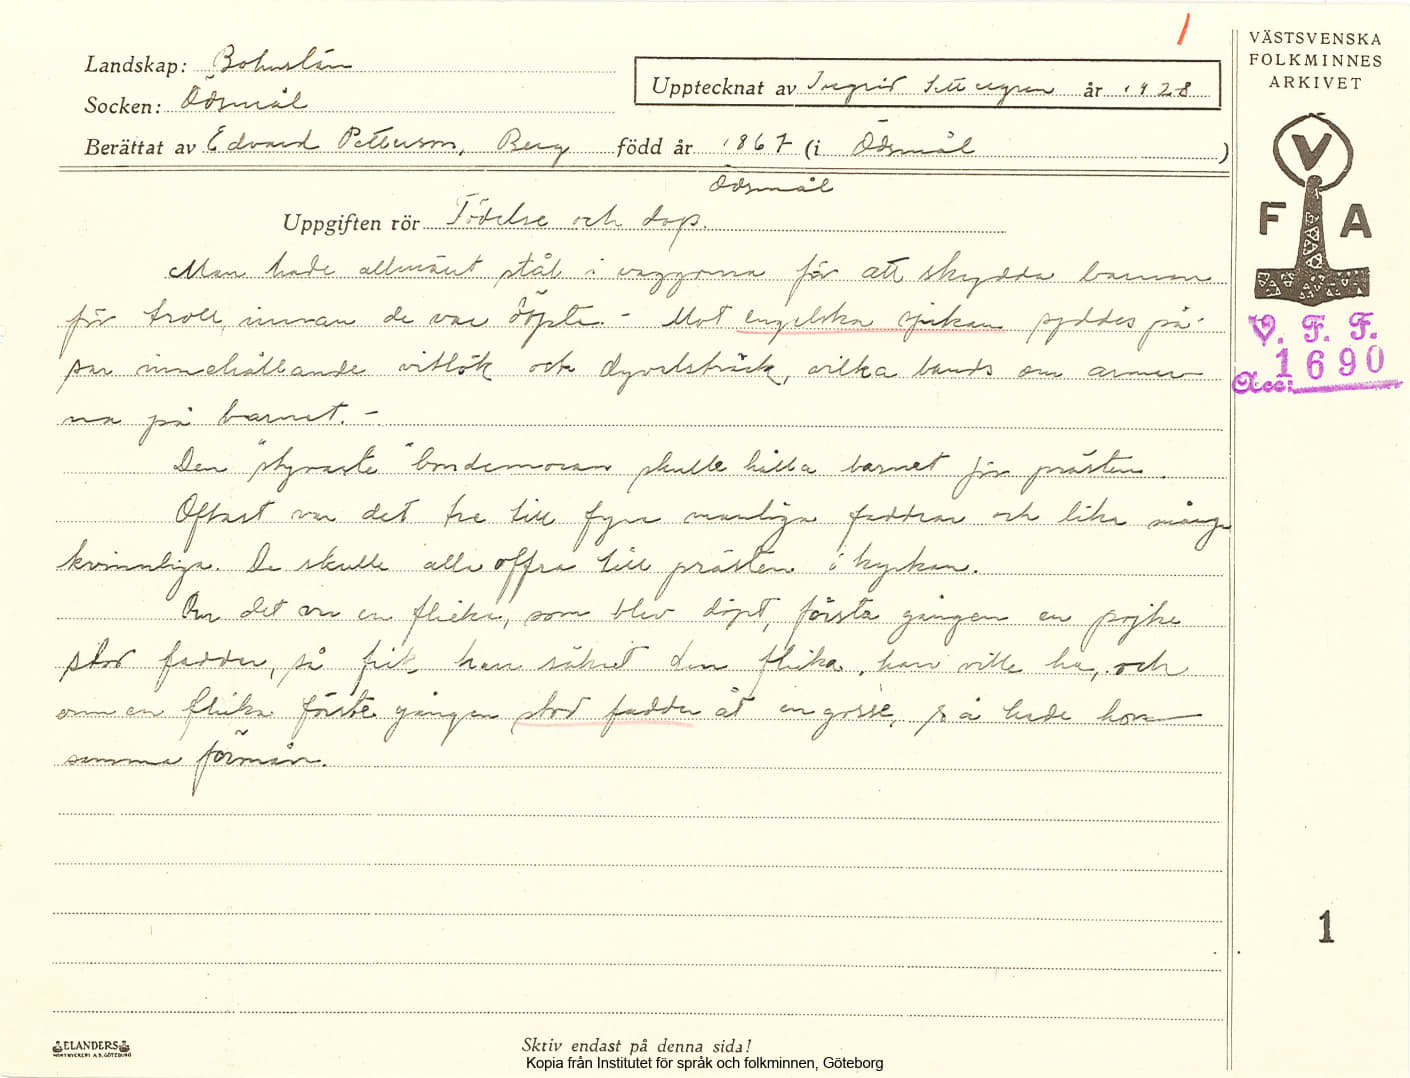 1
VÄSTSVENSKA
FOLKMINNES
ARKIVET
Landskap: Bohuslän
Upptecknat av Ingrid år 1928
Socken: Ödsmål
Berättat av Edvard Petterson, Berg född år 1867 (i Ödsmål)
Ödsmål
Uppgiften rör Födelse och dop.
V
F A
Man hade allmänt stål i vaggorna för att skydda barnen
för troll, innan de var döpta. - Mot engelska sjukan syddes på-
sar innehållande vitlök och dyvelsträck, vilka bands om armar-
na på barnet. -
V. F. F.
Acc: 1690
Den "styvaste" bondemoran skulle hålla barnet för prästen.
Oftast var det tre till fyra manliga faddrar och lika många
kvinnliga. De skulle alla offra till prästen i kyrkan.
Om det var en flicka, som blev döpt, första gången en pojke
stod fadder, så fick han säkert den flicka, han ville ha, och
om en flicka första gången stod fadder åt en gosse, så hade hon
samma förmån.
1
ELANDERS
Skriv endast på denna sida!
Kopia från Institutet för språk och folkminnen, Göteborg